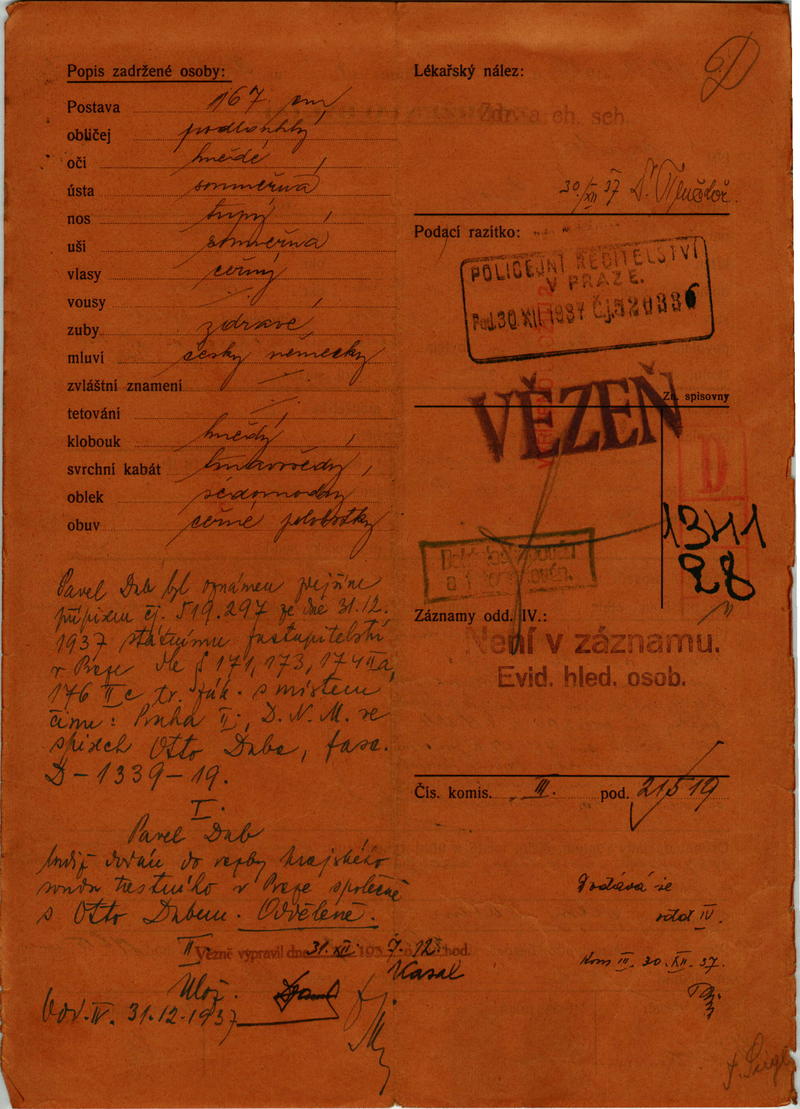 Popis zadržené osoby:
Postava 167 cm
obličej podlouhlý
oči hnědé
ústa souměrná
nos tupý
uši souměrná
vlasy černý
vousy
zuby zdravé
mluví česky německy
zvláštní znamení
tetování
klobouk hnědý
svrchní kabát tmavošedý
oblek
obuv černé polobotky
Pavel Dub byl oznámen zdejším
přípisem čj. 519.297 ze dne 31.12.
1937 státnímu zastupitelství
v Praze dle § 171, 173, 174 II a,
176 II c tr. zák. s místem
činu: Praha II., D. N. M. ve
spisech Otto Duba, fasc.
D-1339-19.
I.
Pavel Dub
budiž dodán do vazby krajského
soudu trestního v Praze společně
s Otto Dubem. Odděleně.
II
Vězně vypravil dne 31. XII. 1937 12 hod.
Kasal
Ulož.
Odd. IV. 31.12.1937
Lékařský nález:
D
30/XII 37 Dr.
Podací razítko:
POLICEJNÍ ŘEDITELSTVÍ
V PRAZE.
Pod. 30 XII 1937 Čj. 520336
VĚZEŇ
Zn. spisovny
D
1341
28
Záznamy odd. IV.:
Není v záznamu.
Evid. hled. osob.
Čís. komis. III. pod. 21519
Dodává se
odd IV.
Kom III. 30. XII. 37.